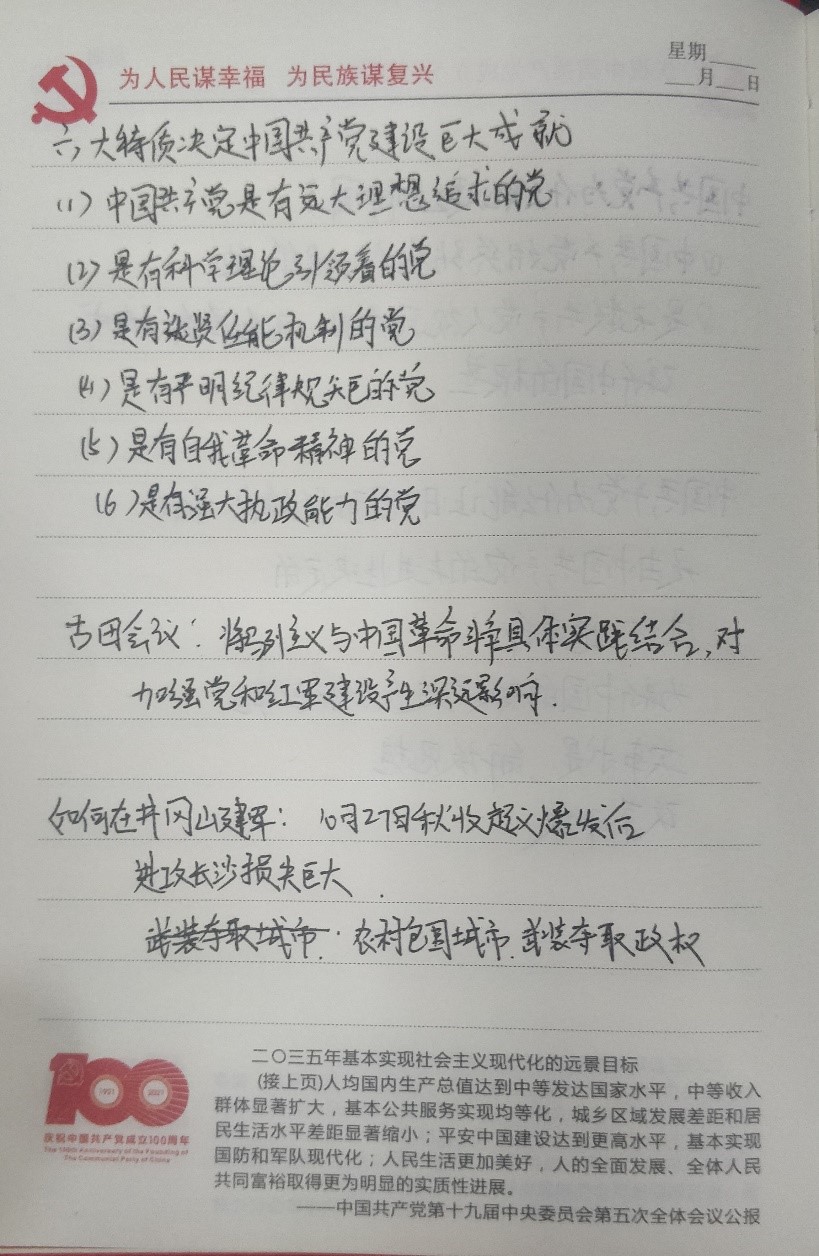 星期____
___月___日
为人民谋幸福 为民族谋复兴
六大特质决定中国共产党建设巨大成就
(1) 中国共产党是有远大理想追求的党
(2) 是有科学理论引领着的党
(3) 是有选贤任能机制的党
(4) 是有严明纪律规矩的党
(5) 是有自我革命精神的党
(6) 是有强大执政能力的党
古田会议: 将马列主义与中国革命斗争具体实践结合,对
加强党和红军建设产生深远影响.
如何在井冈山建军: 10月27日秋收起义爆发后
进攻长沙损失巨大.
武装夺取城市. 农村包围城市.武装夺取政权
100
1921 2021
庆祝中国共产党成立100周年
The 100th Anniversary of the Founding of
The Communist Party of China
二〇三五年基本实现社会主义现代化的远景目标
(接上页)人均国内生产总值达到中等发达国家水平,中等收入
群体显著扩大,基本公共服务实现均等化,城乡区域发展差距和居
民生活水平差距显著缩小;平安中国建设达到更高水平,基本实现
国防和军队现代化;人民生活更加美好,人的全面发展、全体人民
共同富裕取得更为明显的实质性进展。
——中国共产党第十九届中央委员会第五次全体会议公报